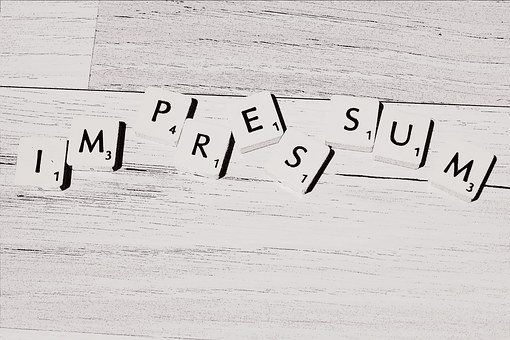 I₁ M₃ P₄ R₁ E₁ S₁ S₁ U₁ M₃